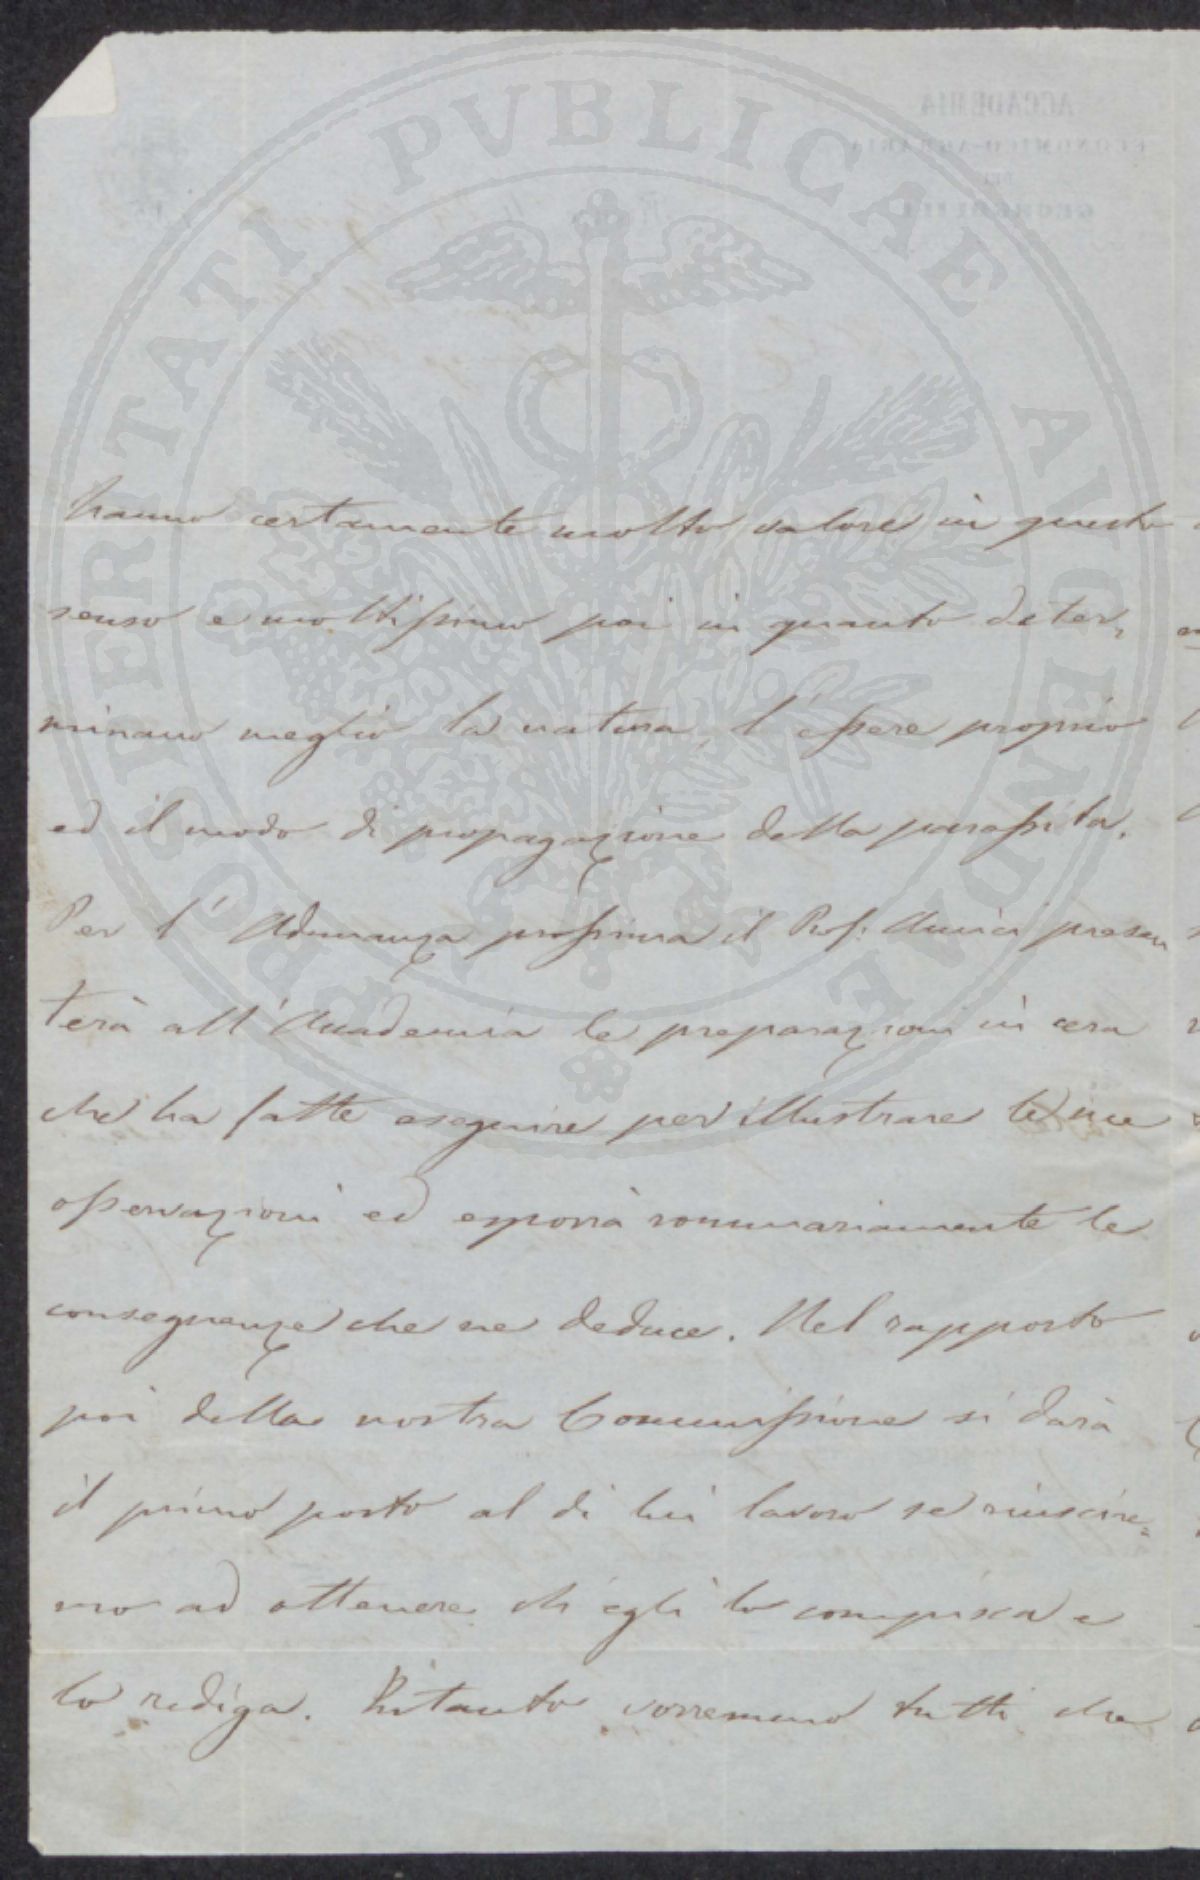 PROSPERITATI PVBLICAE AVGENDAE
hanno certamente molto valore in questo
senso e moltissimo poi in quanto deter,
minano meglio la natura, l'essere proprio
ed il modo di propagazione della parassita.
Per l'Adunanza prossima il Prof. Amici presen,
terà all'Accademia le preparazioni in cera
che ha fatte eseguire per illustrare le sue
osservazioni ed esporrà sommariamente le
conseguenze che ne deduce. Nel rapporto
poi della nostra Commissione si darà
il primo posto al di lui lavoro se riuscire=
mo ad ottenere ch'egli lo compisca e
lo rediga. Intanto vorremmo tutti che